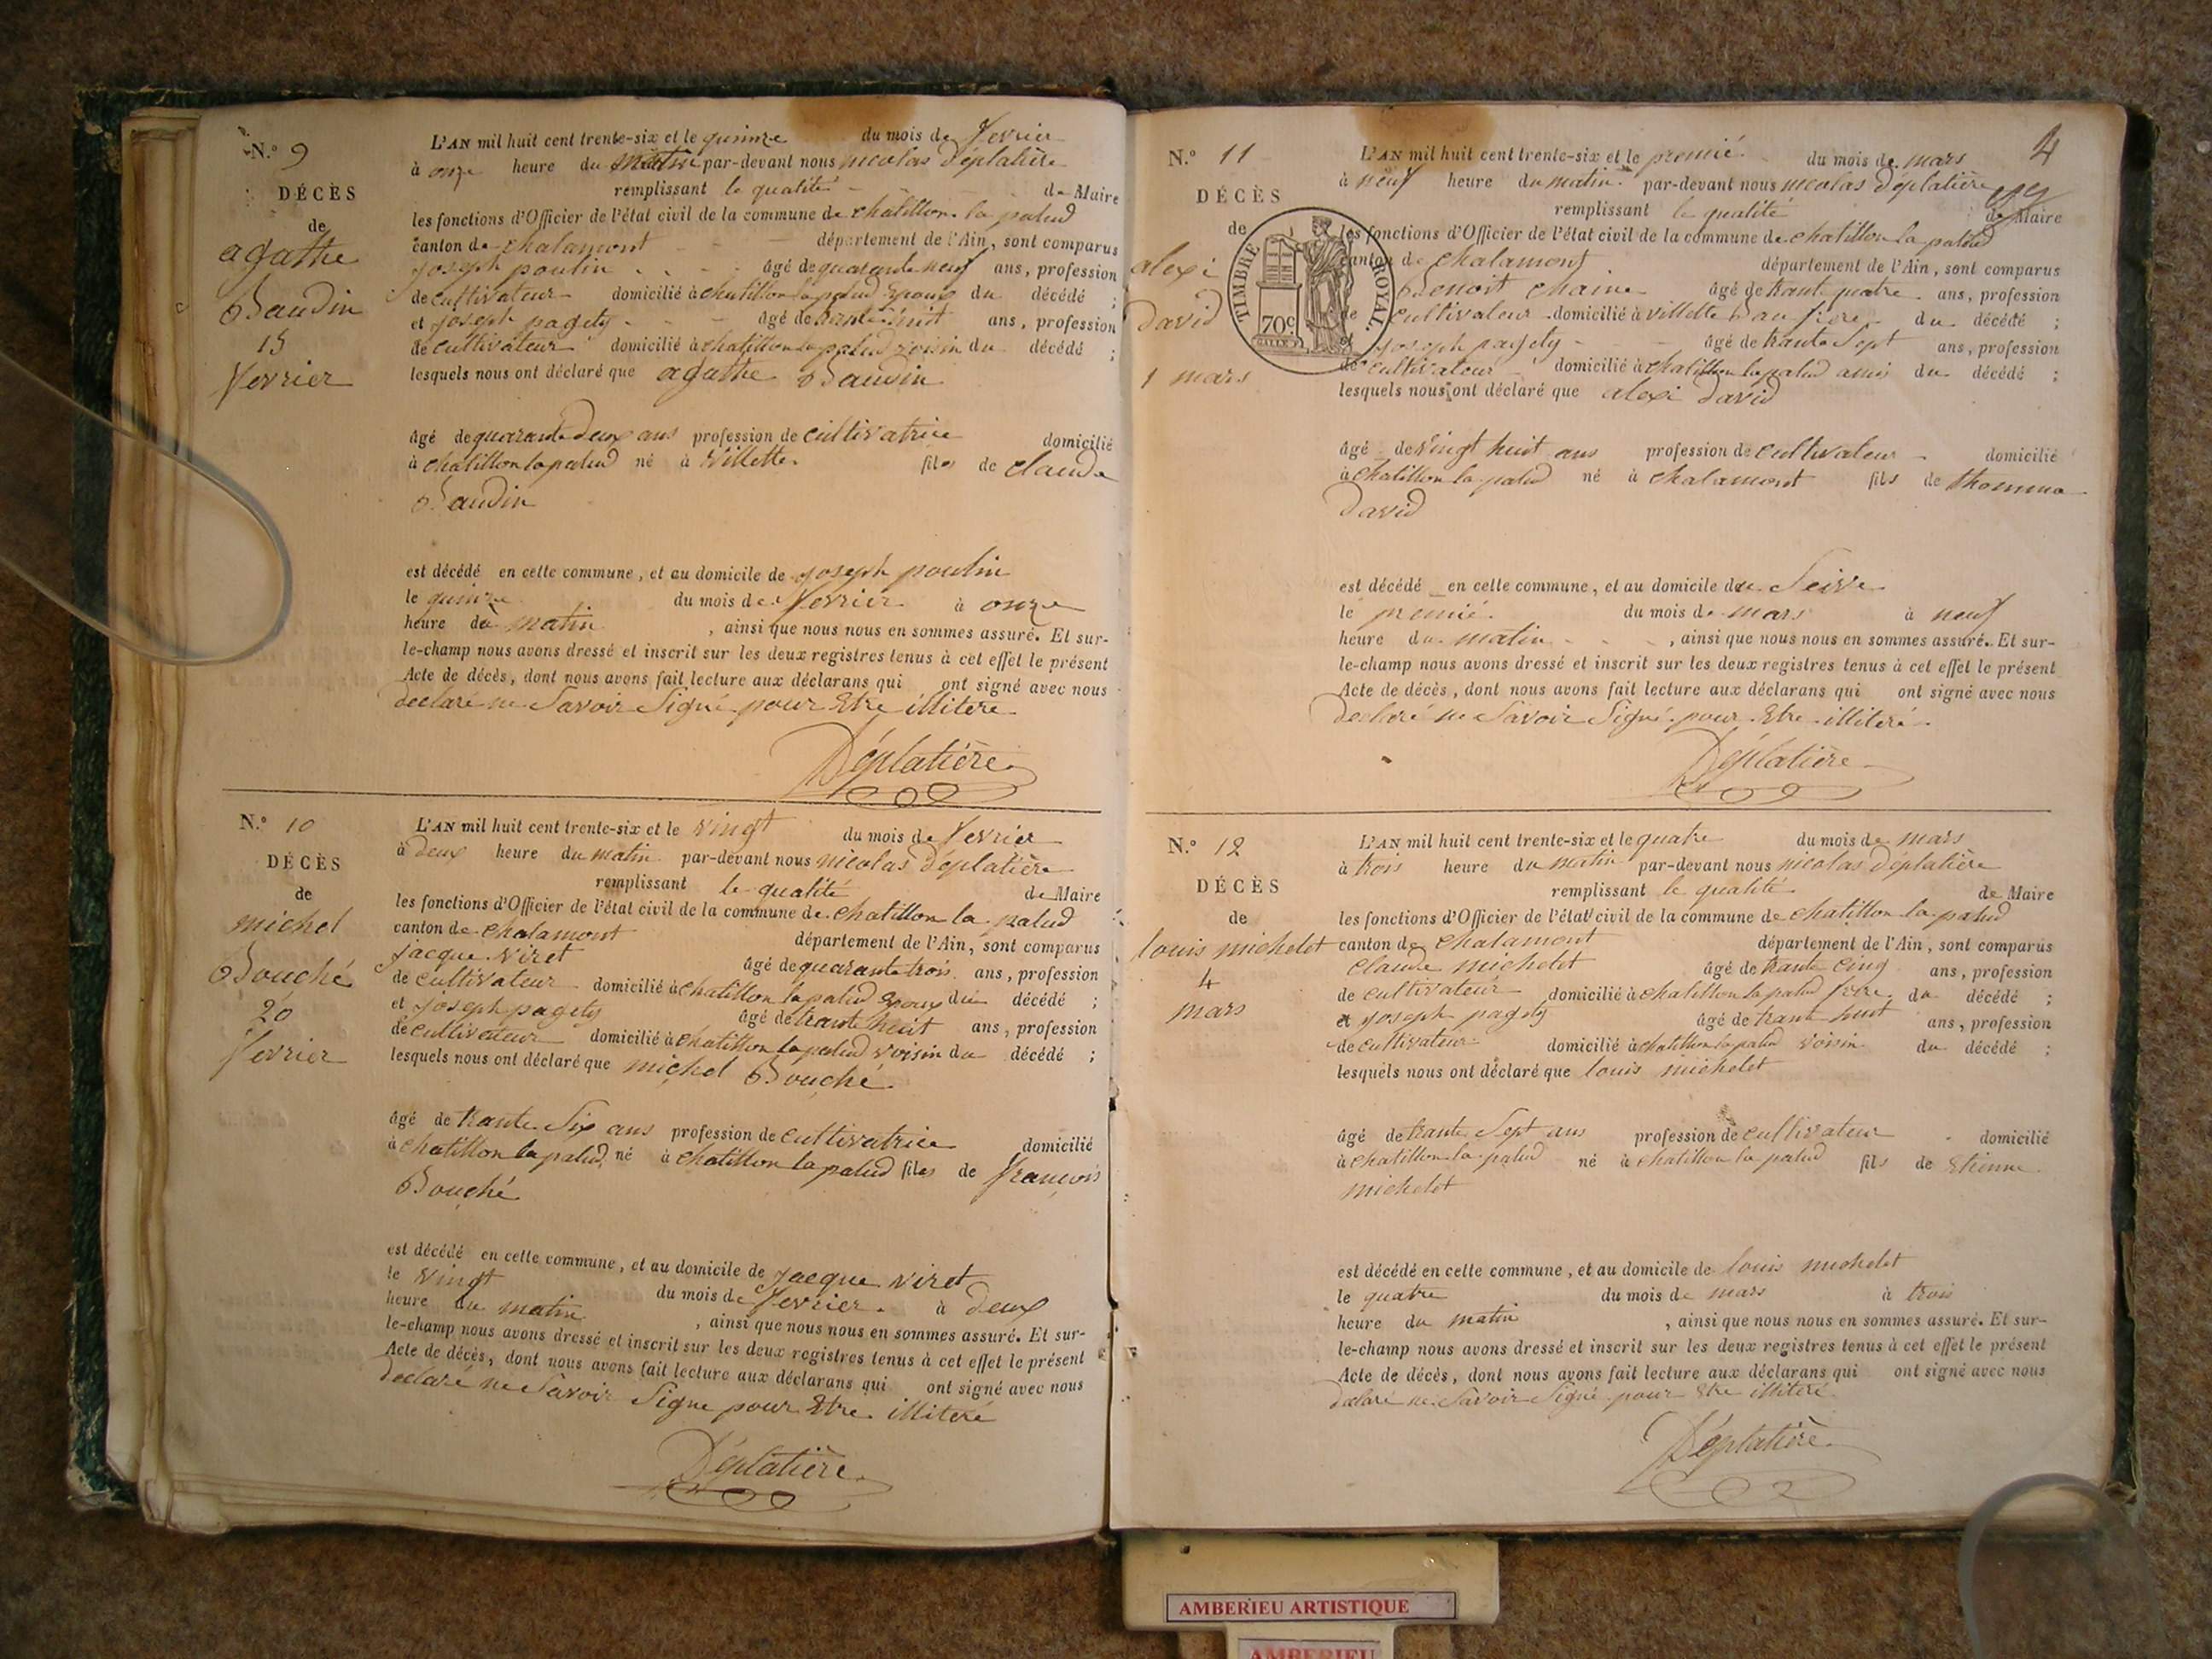 N.º 9
DÉCÈS
de
agathe
Baudin
15
fevrier
L'AN mil huit cent trente-six et le quinze du mois de fevrier
à onze heure du matin par-devant nous nicolas Déplatière
remplissant le qualité de Maire
les fonctions d'Officier de l'état civil de la commune de chatillon la palud
canton de chalamont département de l'Ain, sont comparus
joseph poulin âgé de quarante neuf ans, profession
de cultivateur domicilié à chatillon la palud Epoux du décédé ;
et joseph pagety âgé de trante huit ans, profession
de cultivateur domicilié à chatillon la palud voisin du décédé ;
lesquels nous ont déclaré que agathe Baudin
âgé de quarante deux ans profession de cultivatrice domicilié
à chatillon la palud né à villette fils de claude
Baudin
est décédé en cette commune, et au domicile de joseph poulin
le quinze du mois de fevrier à onze
heure du matin , ainsi que nous nous en sommes assuré. Et sur-
le-champ nous avons dressé et inscrit sur les deux registres tenus à cet effet le présent
Acte de décès, dont nous avons fait lecture aux déclarans qui ont signé avec nous
declaré ne Savoir Signé pour Etre illiteré
Déplatière
N.º 10
DÉCÈS
de
michel
Bouché
20
fevrier
L'AN mil huit cent trente-six et le vingt du mois de fevrier
à deux heure du matin par-devant nous nicolas Déplatière
remplissant le qualité de Maire
les fonctions d'Officier de l'état civil de la commune de chatillon la palud
canton de chalamont département de l'Ain, sont comparus
jacque viret âgé de quarante trois ans, profession
de cultivateur domicilié à chatillon la palud Epoux du décédé ;
et joseph pagety âgé de trante huit ans, profession
de cultivateur domicilié à chatillon la palud voisin du décédé ;
lesquels nous ont déclaré que michel Bouché
âgé de trante Six ans profession de cultivatrice domicilié
à chatillon la palud né à chatillon la palud files de françois
Bouché
est décédé en cette commune, et au domicile de jacque viret
le vingt du mois de fevrier à deux
heure du matin , ainsi que nous nous en sommes assuré. Et sur-
le-champ nous avons dressé et inscrit sur les deux registres tenus à cet effet le présent
Acte de décès, dont nous avons fait lecture aux déclarans qui ont signé avec nous
declaré ne Savoir Signe pour Etre illiteré
Déplatière
4
N.º 11
DÉCÈS
de
alexi
David
1 mars
TIMBRE ROYAL.
70c
L'AN mil huit cent trente-six et le premié du mois de mars
à neuf heure du matin par-devant nous nicolas Déplatière
remplissant le qualité de Maire
les fonctions d'Officier de l'état civil de la commune de chatillon la palud
canton de chalamont département de l'Ain, sont comparus
Benoit chaine âgé de trante quatre ans, profession
de cultivateur domicilié à villette Baufrere du décédé ;
joseph pagety âgé de trante Sept ans, profession
de cultivateur domicilié à chatillon la palud amis du décédé ;
lesquels nous ont déclaré que alexi David
âgé de vingt huit ans profession de cultivateur domicilié
à chatillon la palud né à chalamont fils de thomma
David
est décédé en cette commune, et au domicile de Seive
le premié du mois de mars à neuf
heure du matin , ainsi que nous nous en sommes assuré. Et sur-
le-champ nous avons dressé et inscrit sur les deux registres tenus à cet effet le présent
Acte de décès, dont nous avons fait lecture aux déclarans qui ont signé avec nous
declaré ne Savoir Signé pour Etre illiteré
Déplatière
N.º 12
DÉCÈS
de
louis michelet
4
mars
L'AN mil huit cent trente-six et le quatre du mois de mars
à trois heure du matin par-devant nous nicolas Déplatière
remplissant le qualité de Maire
les fonctions d'Officier de l'état civil de la commune de chatillon la palud
canton de chalamont département de l'Ain, sont comparus
claude michelet âgé de trante cinq ans, profession
de cultivateur domicilié à chatillon la palud frere du décédé ;
et joseph pagety âgé de trante huit ans, profession
de cultivateur domicilié à chatillon la palud voisin du décédé ;
lesquels nous ont déclaré que louis michelet
âgé de trante Sept ans profession de cultivateur domicilié
à chatillon la palud né à chatillon la palud fils de Etienne
michelet
est décédé en cette commune, et au domicile de louis michelet
le quatre du mois de mars à trois
heure du matin , ainsi que nous nous en sommes assuré. Et sur-
le-champ nous avons dressé et inscrit sur les deux registres tenus à cet effet le présent
Acte de décès, dont nous avons fait lecture aux déclarans qui ont signé avec nous
declaré ne Savoir Signé pour Etre illiteré
Déplatière
AMBERIEU ARTISTIQUE
AMBERIEU